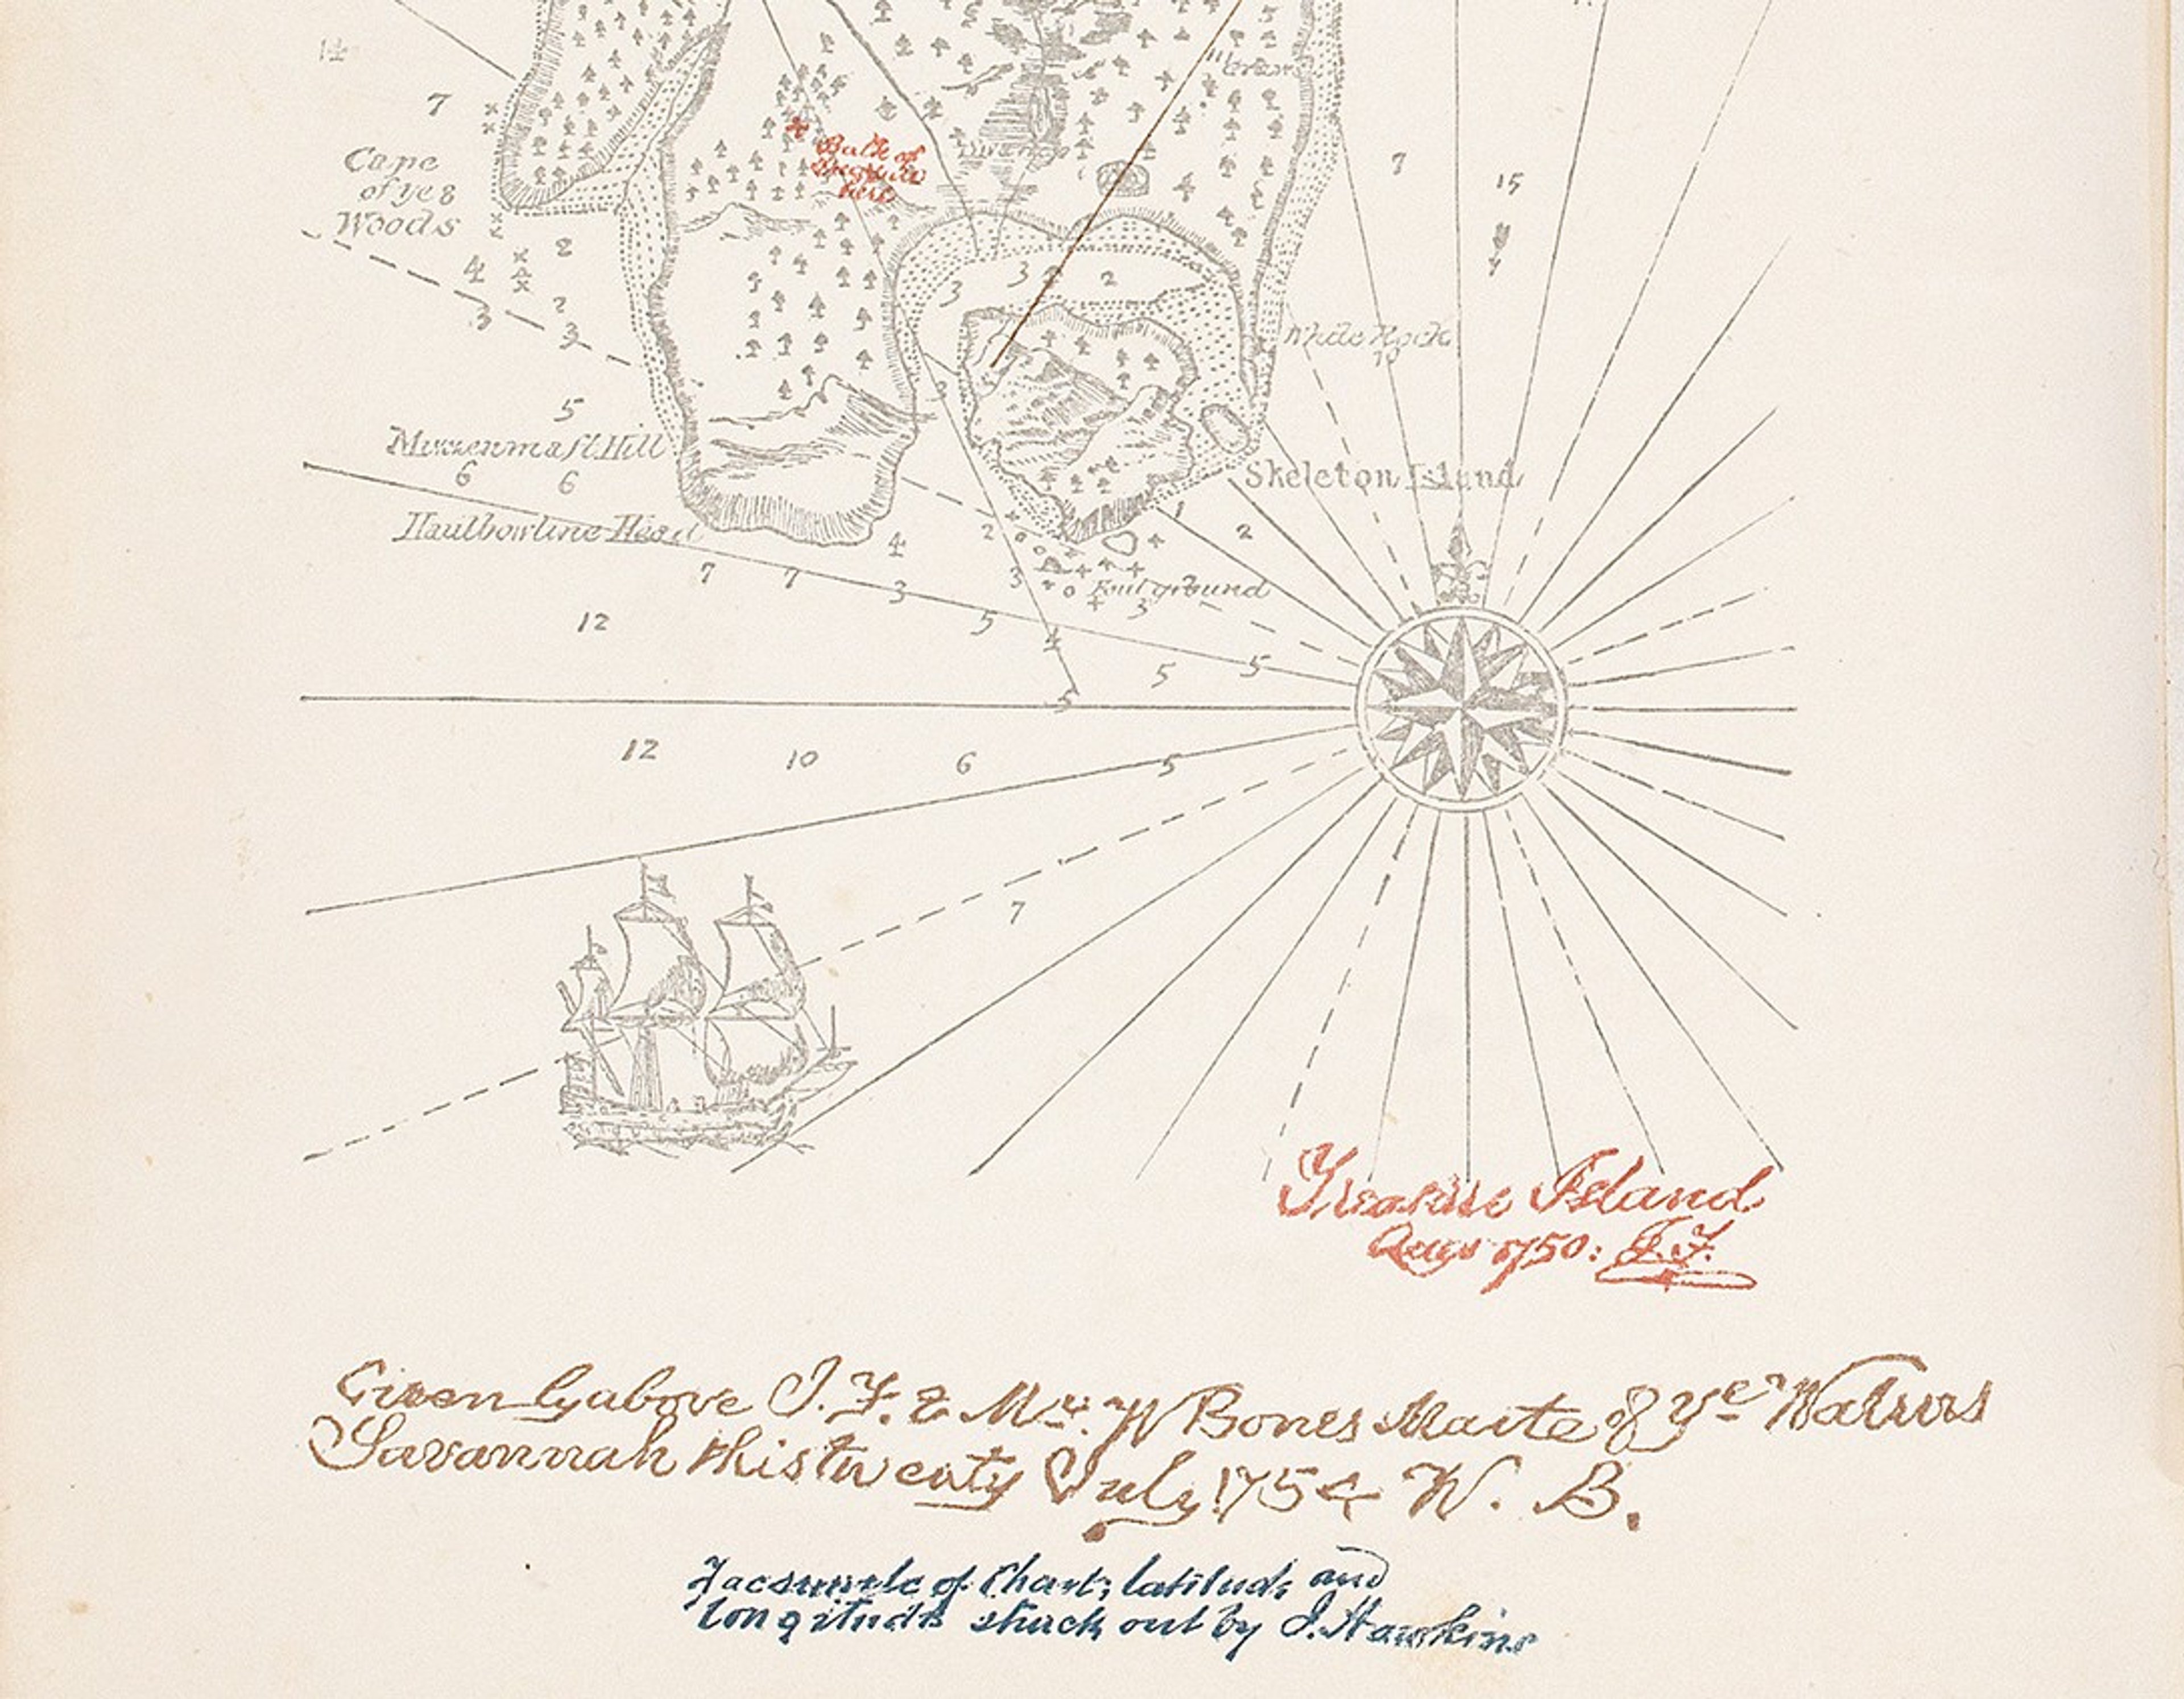 14
7
7
15
Cape
of ye
Woods
Bulk of
treasure
here
Swamp
4
3
2
2
4
3
2
3
3
White Rock
10
5
3
Mizzenmast Hill
6 6
Skeleton Island
Haulbowline Head
4
2
1
2
7 7
3
3
Foul ground
3
12
5
4
5
5
5
12
10
6
5
7
Treasure Island
Augt 1750: J.F.
Given by above J.F. & Mr. W Bones Maite of ye Walrus
Savannah this twenty July 1754 W. B.
Facsimile of Chart; latitude and
longitude struck out by J. Hawkins